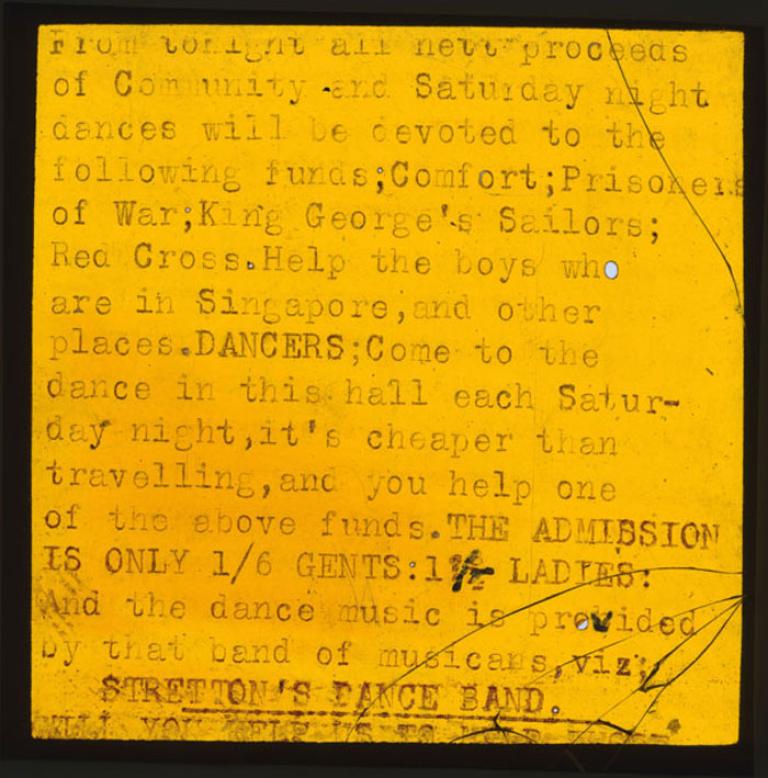 From tonight all nett proceeds
of Community and Saturday night
dances will be devoted to the
following funds;Comfort;Prisoners
of War;King George's Sailors;
Red Cross.Help the boys who
are in Singapore,and other
places.DANCERS;Come to the
dance in this hall each Satur-
day night,it's cheaper than
travelling,and you help one
of the above funds.THE ADMISSION
IS ONLY 1/6 GENTS: LADIES:
And the dance music is provided
by that band of musicans,viz;
STRETTON'S DANCE BAND.
WILL YOU HELP US TO